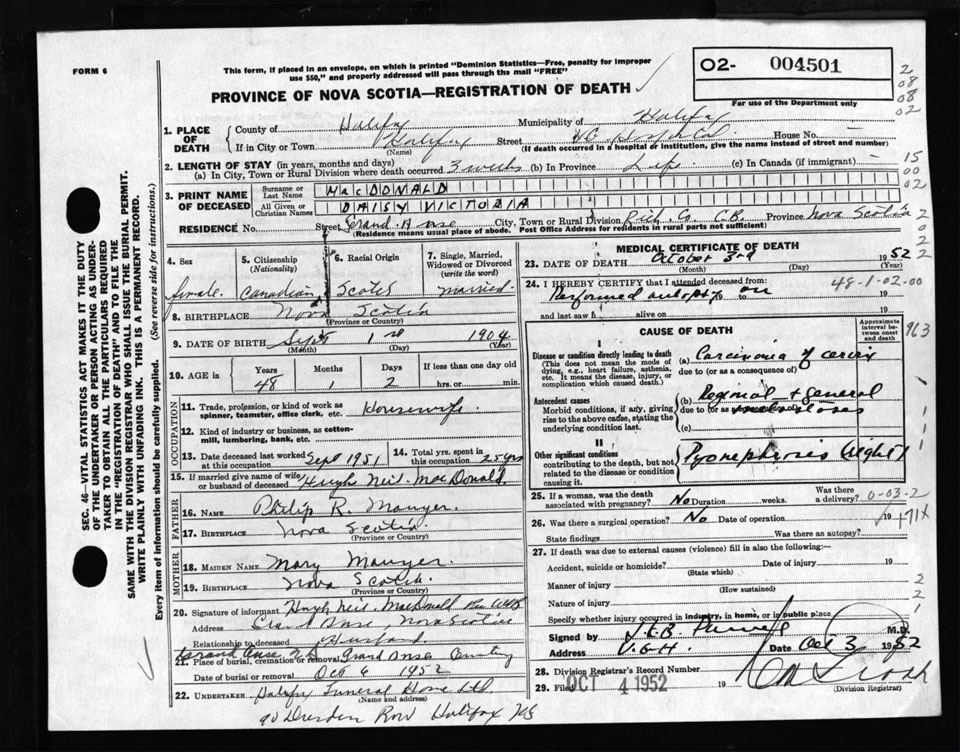 FORM 6
This form, if placed in an envelope, on which is printed "Dominion Statistics—Free, penalty for improper
use $50," and properly addressed will pass through the mail "FREE"
PROVINCE OF NOVA SCOTIA—REGISTRATION OF DEATH
02- 004501
For use of the Department only
2 08 08 02
1. PLACE OF DEATH
County of Halifax Municipality of Halifax
If in City or Town Halifax Street V.G. Hospital House No. —
(Name) (If death occurred in a hospital or institution, give the name instead of street and number)
2. LENGTH OF STAY (in years, months and days)
(a) In City, Town or Rural Division where death occurred 3 weeks (b) In Province Life (c) In Canada (if immigrant) —
15 00 02
3. PRINT NAME OF DECEASED
Surname or Last Name MacDONALD
All Given or Christian Names DAISY VICTORIA
RESIDENCE No. Street Grand Anse City, Town or Rural Division Rich. Co. C.B. Province Nova Scotia
(Residence means usual place of abode. Post Office Address for residents in rural parts not sufficient)
2 0 2 2
4. Sex female
5. Citizenship (Nationality) Canadian
6. Racial Origin Scotch
7. Single, Married, Widowed or Divorced (write the word) Married
8. BIRTHPLACE Nova Scotia
(Province or Country)
9. DATE OF BIRTH Sept 1st 1904
(Month) (Day) (Year)
10. AGE in Years 48 Months 1 Days 2 If less than one day old hrs. or min.
OCCUPATION
11. Trade, profession, or kind of work as spinner, teamster, office clerk, etc. Housewife.
12. Kind of industry or business, as cotton-mill, lumbering, bank, etc.
13. Date deceased last worked at this occupation Sept 1951
14. Total yrs. spent in this occupation 25 yrs
15. If married give name of wife or husband of deceased Hugh Neil MacDonald.
FATHER
16. Name Philip R. Mauger.
17. BIRTHPLACE Nova Scotia
(Province or Country)
MOTHER
18. MAIDEN NAME Mary Mauger.
19. BIRTHPLACE Nova Scotia.
(Province or Country)
20. Signature of informant Hugh Neil MacDonald
Address Grand Anse, Nova Scotia
Relationship to deceased Husband
Grand Anse N.S. Grand Anse
21. Place of burial, cremation or removal
Oct 6 1952
22. UNDERTAKER Halifax Funeral Home Ltd.
(Name and address)
90 Dresden Row Halifax NS
MEDICAL CERTIFICATE OF DEATH
23. DATE OF DEATH October 3rd 1952
(Month) (Day) (Year)
24. I HEREBY CERTIFY that I attended deceased from:
48-1-02-00
Performed autopsy to on
and last saw h alive on
CAUSE OF DEATH
Approximate interval between onset and death
963
Disease or condition directly leading to death
(This does not mean the mode of dying, e.g., heart failure, asthenia, etc. It means the disease, injury, or complication which caused death.)
(a) Carcinoma of cervix
due to (or as a consequence of)
Antecedent causes
Morbid conditions, if any, giving rise to the above cause, stating the underlying condition last.
(b) Regional & general
due to (or as a consequence of) metastases
(c)
II
Other significant conditions
contributing to the death, but not related to the disease or condition causing it.
Pyonephrosis (right)
25. If a woman, was the death associated with pregnancy? No Duration weeks. Was there a delivery?
0-03-2
26. Was there a surgical operation? No Date of operation 19
171X
State findings Was there an autopsy?
27. If death was due to external causes (violence) fill in also the following:—
Accident, suicide or homicide? Date of injury 19
(State which)
Manner of injury
(How sustained)
Nature of injury
2 2 1
Specify whether injury occurred in industry, in home, or in public place
Signed by M.D.
Address V.G.H. Date Oct 3 1952
28. Division Registrar's Record Number
29. Filed OCT 4 1952 19
(Division Registrar)
SEC. 46—VITAL STATISTICS ACT MAKES IT THE DUTY
OF THE UNDERTAKER OR PERSON ACTING AS UNDER-
TAKER TO OBTAIN ALL THE PARTICULARS REQUIRED
IN THE "REGISTRATION OF DEATH" AND TO FILE THE
SAME WITH THE DIVISION REGISTRAR WHO SHALL ISSUE THE BURIAL PERMIT.
WRITE PLAINLY WITH UNFADING INK. THIS IS A PERMANENT RECORD.
Every item of information should be carefully supplied. (See reverse side for instructions.)